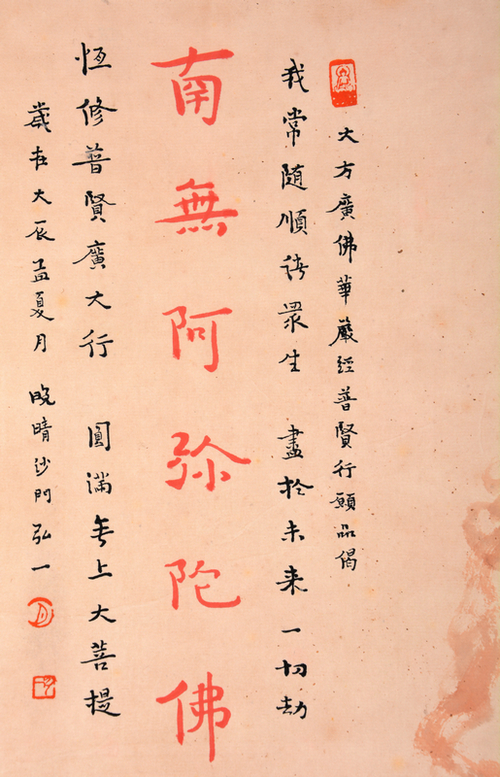 大方廣佛華嚴經普賢行願品偈
我常隨順諸眾生 盡於未来一切劫
南無阿弥陀佛
恆修普賢廣大行 圓滿無上大菩提
歲在大辰孟夏月 晚晴沙門弘一